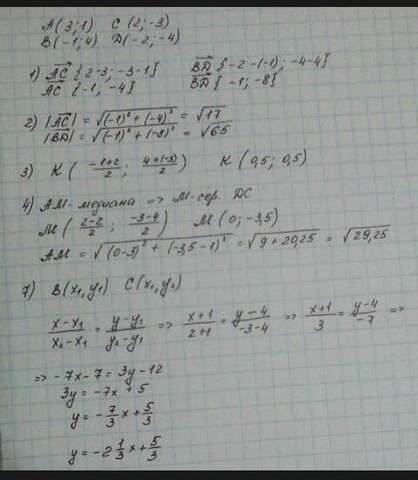 A(3;1) C(2;-3)
B(-1;4) D(-2;-4)
1) AC {2-3; -3-1} BD {-2-(-1); -4-4}
AC {-1; -4} BD {-1; -8}
2) |AC| = √((-1)² + (-4)²) = √17
|BD| = √((-1)² + (-8)²) = √65
3) K ( (-1+2)/2 ; (4+(-3))/2 ) K (0,5; 0,5)
4) AM - медиана => M-сер. DC
M ( (2-2)/2 ; (-3-4)/2 ) M (0; -3,5)
AM = √((0-3)² + (-3,5-1)²) = √(9+20,25) = √29,25
7) B(x₁,y₁) C(x₂,y₂)
(x-x₁)/(x₂-x₁) = (y-y₁)/(y₂-y₁) => (x+1)/(2+1) = (y-4)/(-3-4) => (x+1)/3 = (y-4)/-7 =>
=> -7x-7 = 3y-12
3y = -7x + 5
y = -7/3 x + 5/3
y = -2 1/3 x + 5/3